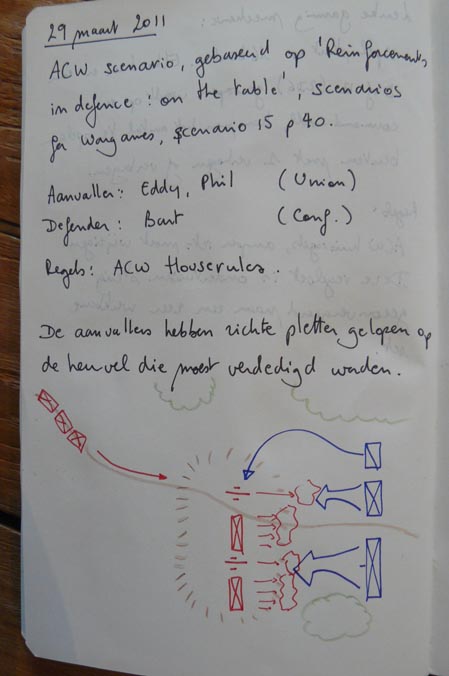 29 maart 2011
ACW scenario, gebaseerd op 'Reinforcements
in defence: on the table', scenarios
for Wargames, scenario 15 p 40.
Aanvaller: Eddy, Phil (Union)
Defender: Bart (Conf.)
Regels: ACW Houserules.
De aanvallers hebben zichte pletter gelopen op
de heuvel die moest verdedigd worden.